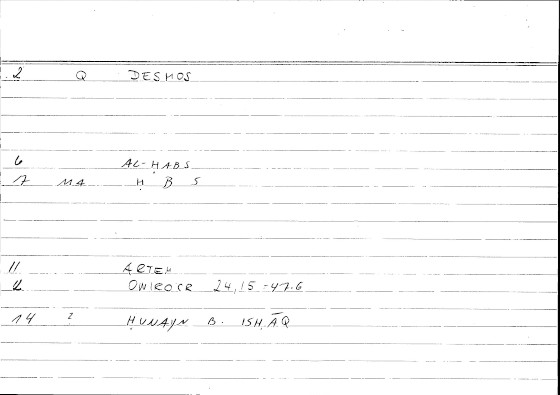 2 Q DESMOS
6 AL-ḤABS
7 MA Ḥ B S
11 ARTEM
12 ONIROCR 24,15-47.6
14 ? ḤUNAYN B. ISḤĀQ